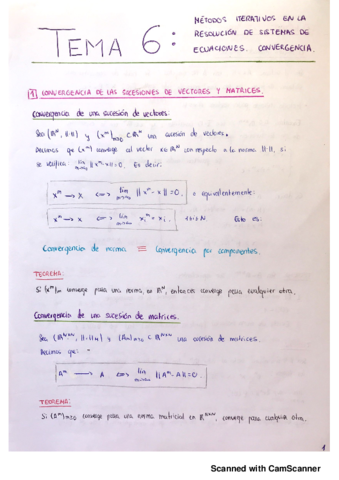 TEMA 6: MÉTODOS ITERATIVOS EN LA
RESOLUCIÓN DE SISTEMAS DE
ECUACIONES. CONVERGENCIA.
1 CONVERGENCIA DE LAS SUCESIONES DE VECTORES Y MATRICES.
Convergencia de una sucesión de vectores:
Sea (ℝᴺ, ||·||) y (xᵐ)ₘ≥₀ ⊂ ℝᴺ una sucesión de vectores.
Decimos que (xᵐ) converge al vector x∈ℝᴺ con respecto a la norma ||·||, si
se verifica: lim ||xᵐ - x|| = 0. Es decir:
xᵐ → x <=> lim ||xᵐ - x|| = 0. o equivalentemente:
xᵐ → x <=> lim xᵢᵐ = xᵢ. Esto es:
Convergencia de norma ≡ Convergencia por componentes.
TEOREMA:
Si (xᵐ)ₘ converge para una norma, en ℝᴺ, entonces converge para cualquier otra.
Convergencia de una sucesión de matrices.
Sea (ℝᴺˣᴺ, ||·||) y (Aₘ)ₘ≥₀ ⊂ ℝᴺˣᴺ una sucesión de matrices.
Decimos que:
Aᵐ → A <=> lim ||Aᵐ - A|| = 0.
TEOREMA:
Si (Aᵐ)ₘ≥₀ converge para una norma matricial en ℝᴺˣᴺ, converge para cualquier otra.
1
Scanned with CamScanner